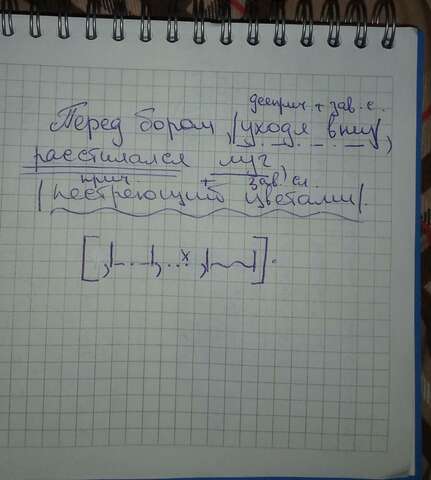 дееприч + зав. с.
Перед бором, |уходя вниз|,
расстилался луг,
прич + зав. сл.
|пестреющий цветами|.
[ ,|_._._|, ... х ,|~~~| ].